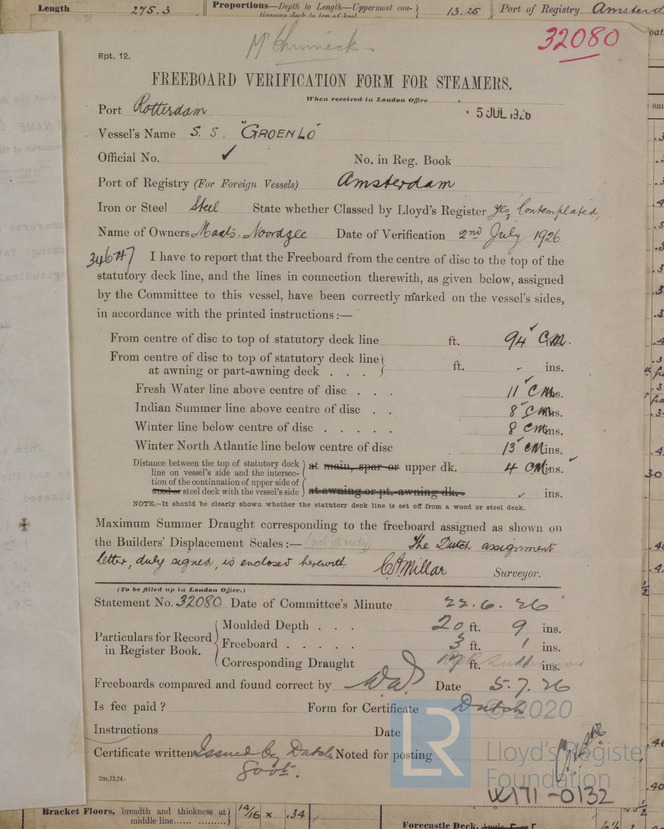 Length 275.3 Proportions—Depth to Length—Uppermost con- 13.25 Port of Registry Amsterd
tinuous deck to top of keel
32080
Rpt. 12.
FREEBOARD VERIFICATION FORM FOR STEAMERS.
When received in London Office
Port Rotterdam 5 JUL 1926
Vessel's Name S. S. "GROENLO"
Official No. ✓ No. in Reg. Book
Port of Registry (For Foreign Vessels) Amsterdam
Iron or Steel Steel State whether Classed by Lloyd's Register Yes, Contemplated,
Name of Owners Maats. Noordzee Date of Verification 2nd July 1926
I have to report that the Freeboard from the centre of disc to the top of the
statutory deck line, and the lines in connection therewith, as given below, assigned
by the Committee to this vessel, have been correctly marked on the vessel's sides,
in accordance with the printed instructions:—
From centre of disc to top of statutory deck line ft. 94 CM.
From centre of disc to top of statutory deck line
at awning or part-awning deck . . . ft. ins.
Fresh Water line above centre of disc . . . 11 CMns.
Indian Summer line above centre of disc . . 8 CMns.
Winter line below centre of disc . . . . . 8 CMins.
Winter North Atlantic line below centre of disc 13 CMins.
Distance between the top of statutory deck
line on vessel's side and the intersec-
tion of the continuation of upper side of
wood or steel deck with the vessel's side
at main, spar or upper dk. 4 CMins.
at awning or pt.-awning dk. ins.
NOTE.—It should be clearly shown whether the statutory deck line is set off from a wood or steel deck.
Maximum Summer Draught corresponding to the freeboard assigned as shown on
the Builders' Displacement Scales:— (not ready) The Dutch assignment
letter, duly signed, is enclosed herewith CAMillar Surveyor.
(To be filled up in London Office.)
Statement No. 32080 Date of Committee's Minute 22.6.26
Particulars for Record
in Register Book.
Moulded Depth . . . 20 ft. 9 ins.
Freeboard . . . . 3 ft. 1 ins.
Corresponding Draught 17 ft. ins.
Freeboards compared and found correct by Date 5.7.26
Is fee paid? Form for Certificate Dutch
Instructions Date
Certificate written Issued by Dutch Noted for posting
Govt.
2m,12,24.
LR © 2020
Lloyd's Register
Foundation
W171-0132
Bracket Floors, breadth and thickness at 14/16 x .34
middle line
Forecastle Deck,